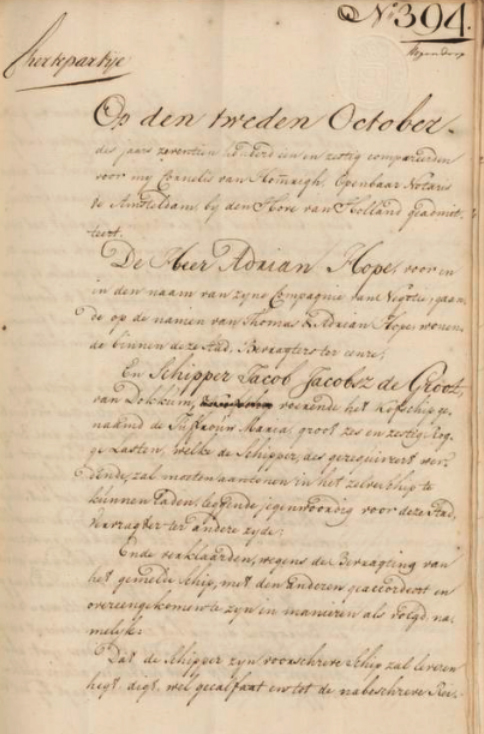 N.º 394.
Chertepartije
Op den tweden October
des jaars zeventien honderd een en zestig compareerden
voor my Cornelis van Homrigh, Openbaar Notaris
te Amsteldam, by den Hove van Holland geadmit-
teert.
De Heer Adrian Hope, voor en
in den naam van zyne Compagnie van Negotie, gaan-
de op de namen van Thomas & Adrian Hope, wonen-
de binnen deze stad, Bevragters ter eenre,
En Schipper Jacob Jacobsz de Groot,
van Dokkum, voerende het Kofschip ge-
naamd de Juffrouw Maria, groot zes en zestig Rog-
ge Lasten, welke de Schipper, des gerequireert wer-
dende, zal moeten aantonen in het zelve schip te
kunnen laden, leggende jegenwoordig voor deze Stad,
Vervragter ter andere zyde;
Ende verklaarden, wegens de Bevragting van
het gemelde schip, met den anderen geaccordeert en
overeengekomen te zyn in manieren als volgd, na-
melyk:
Dat de Schipper zyn voorschreve Schip zal leveren
hegt, digt, wel gecalfaat en tot de nabeschreve Rei-